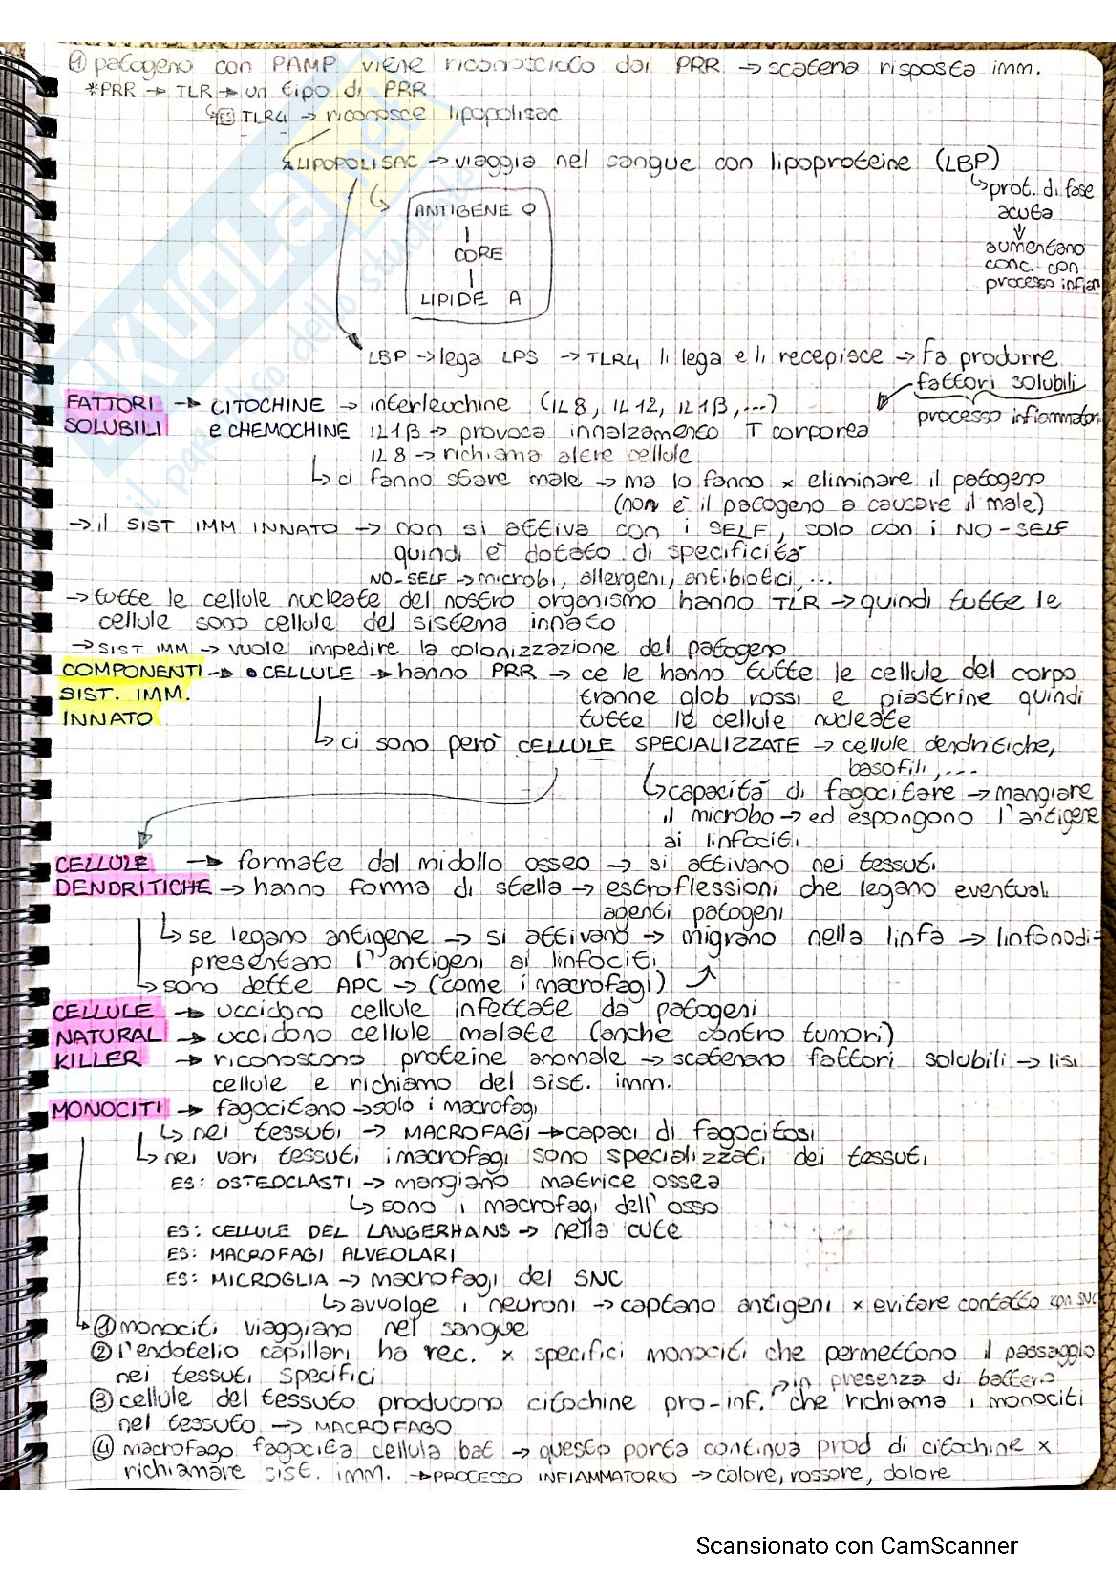 ① patogeno con PAMP viene riconosciuto dai PRR → scatena risposta imm.
*PRR → TLR → un tipo di PRR
↳ ES TLR4 → riconosce lipopolisac
LIPOPOLISAC → viaggia nel sangue con lipoproteine (LBP)
↳ prot. di fase
acuta
⇓
aumentano
conc. con
processo infiam
ANTIGENE O
|
CORE
|
LIPIDE A
LBP → lega LPS → TLR4 li lega e li recepisce → fa produrre
fattori solubili
processo infiammator
FATTORI → CITOCHINE → interleuchine (IL8, IL12, IL1β, ...)
SOLUBILI e CHEMOCHINE IL1β → provoca innalzamento T corporea
IL8 → richiama altre cellule
↳ ci fanno stare male → ma lo fanno × eliminare il patogeno
(non è il patogeno a causare il male)
→ il SIST IMM INNATO → non si attiva con i SELF, solo con i NO-SELF
quindi è dotato di specificità
NO-SELF → microbi, allergeni, antibiotici, ...
→ tutte le cellule nucleate del nostro organismo hanno TLR → quindi tutte le
cellule sono cellule del sistema innato
→ SIST IMM → vuole impedire la colonizzazione del patogeno
COMPONENTI → • CELLULE → hanno PRR → ce le hanno tutte le cellule del corpo
SIST. IMM. tranne glob rossi e piastrine quindi
INNATO tutte le cellule nucleate
↳ ci sono però CELLULE SPECIALIZZATE → cellule dendritiche,
basofili, ...
↳ capacità di fagocitare → mangiare
il microbo → ed espongono l'antigene
ai linfociti
CELLULE → formate dal midollo osseo → si attivano nei tessuti
DENDRITICHE → hanno forma di stella → estroflessioni che legano eventuali
agenti patogeni
↳ se legano antigene → si attivano → migrano nella linfa → linfonodi →
presentano l'antigeni ai linfociti
↳ sono dette APC → (come i macrofagi)
CELLULE → uccidono cellule infettate da patogeni
NATURAL → uccidono cellule malate (anche contro tumori)
KILLER → riconoscono proteine anomale → scatenano fattori solubili → lisi
cellule e richiamo del sist. imm.
MONOCITI → fagocitano → solo i macrofagi
↳ nei tessuti → MACROFAGI → capaci di fagocitosi
↳ nei vari tessuti i macrofagi sono specializzati dei tessuti
ES: OSTEOCLASTI → mangiano matrice ossea
↳ sono i macrofagi dell'osso
ES: CELLULE DEL LANGERHANS → nella cute
ES: MACROFAGI ALVEOLARI
ES: MICROGLIA → macrofagi del SNC
↳ avvolge i neuroni → captano antigeni × evitare contatto con SNC
↳ ① monociti viaggiano nel sangue
② l'endotelio capillari ha rec. × specifici monociti che permettono il passaggio
nei tessuti specifici
→ in presenza di batterio
③ cellule del tessuto producono citochine pro-inf. che richiama i monociti
nel tessuto → MACROFAGO
④ macrofago fagocita cellula bat → questo porta continua prod di citochine ×
richiamare sist. imm. → PROCESSO INFIAMMATORIO → calore, rossore, dolore
SKUOLA.net
il paradiso dello studente
Scansionato con CamScanner